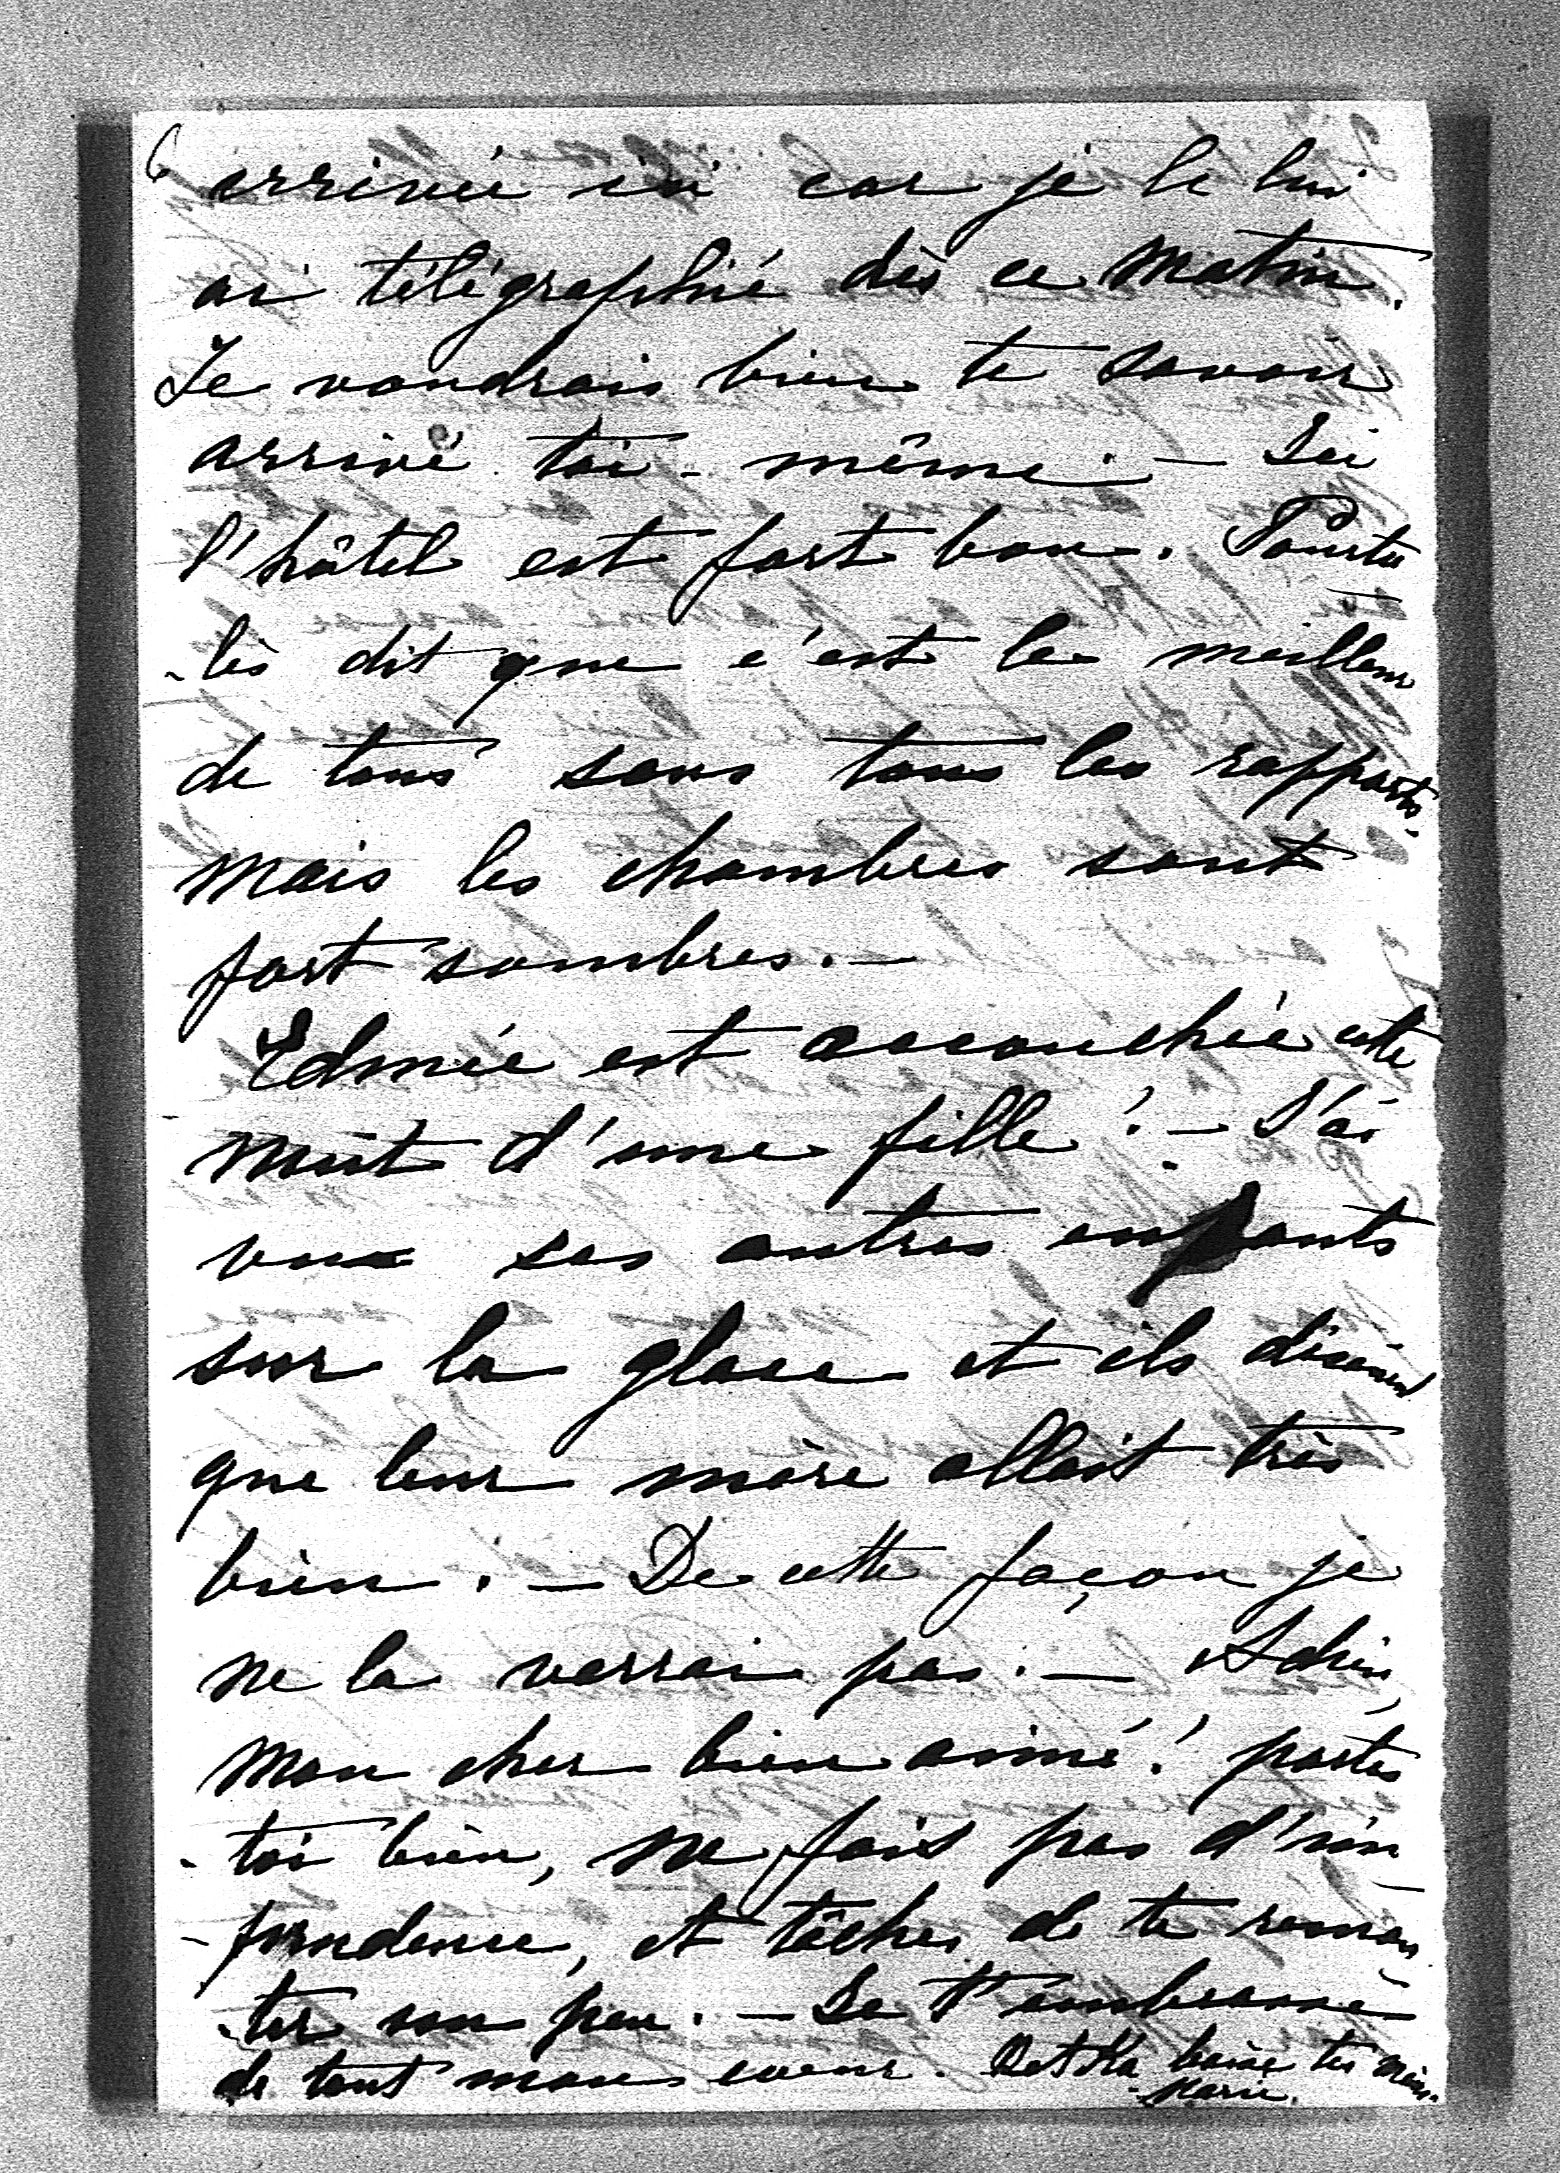 6
arrivée ici car je le lui
ai télégraphié dès ce matin.
Je voudrais bien te savoir
arrivé toi-même. — Ici
l'hôtel est fort bon. Pourta
-lès dit que c'est le meilleur
de tous sous tous les rapports.
mais les chambres sont
fort sombres. —
Edmée est accouchée cette
nuit d'une fille! — J'ai
vu ses autres enfants
sur la glace et ils disent
que leur mère allait très
bien. — De cette façon je
ne la verrai pas. — Adieu,
mon cher bien aimé! portes
-toi bien, ne fais pas d'im
-prudence, et tâches de te remon
-ter un peu. — Je t'embrasse
de tout mon coeur. Betka baise tes mains.
Marie.